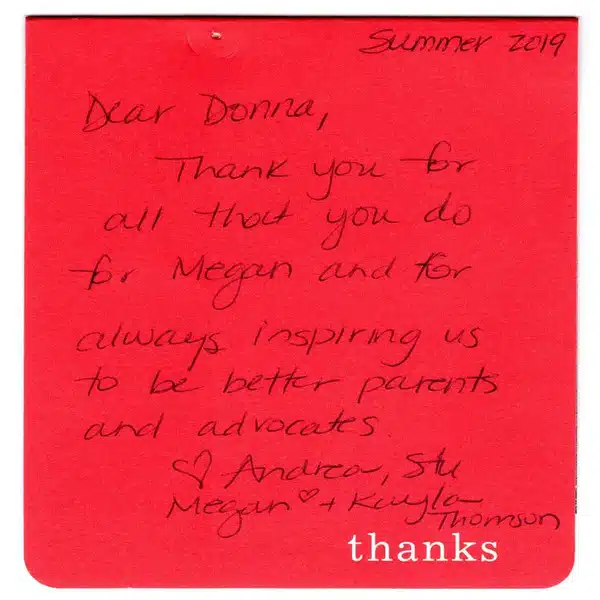 Summer 2019
Dear Donna,
Thank you for
all that you do
for Megan and for
always inspiring us
to be better parents
and advocates.
♡ Andrea, Stu
Megan ♡ + Kayla
Thomson
thanks